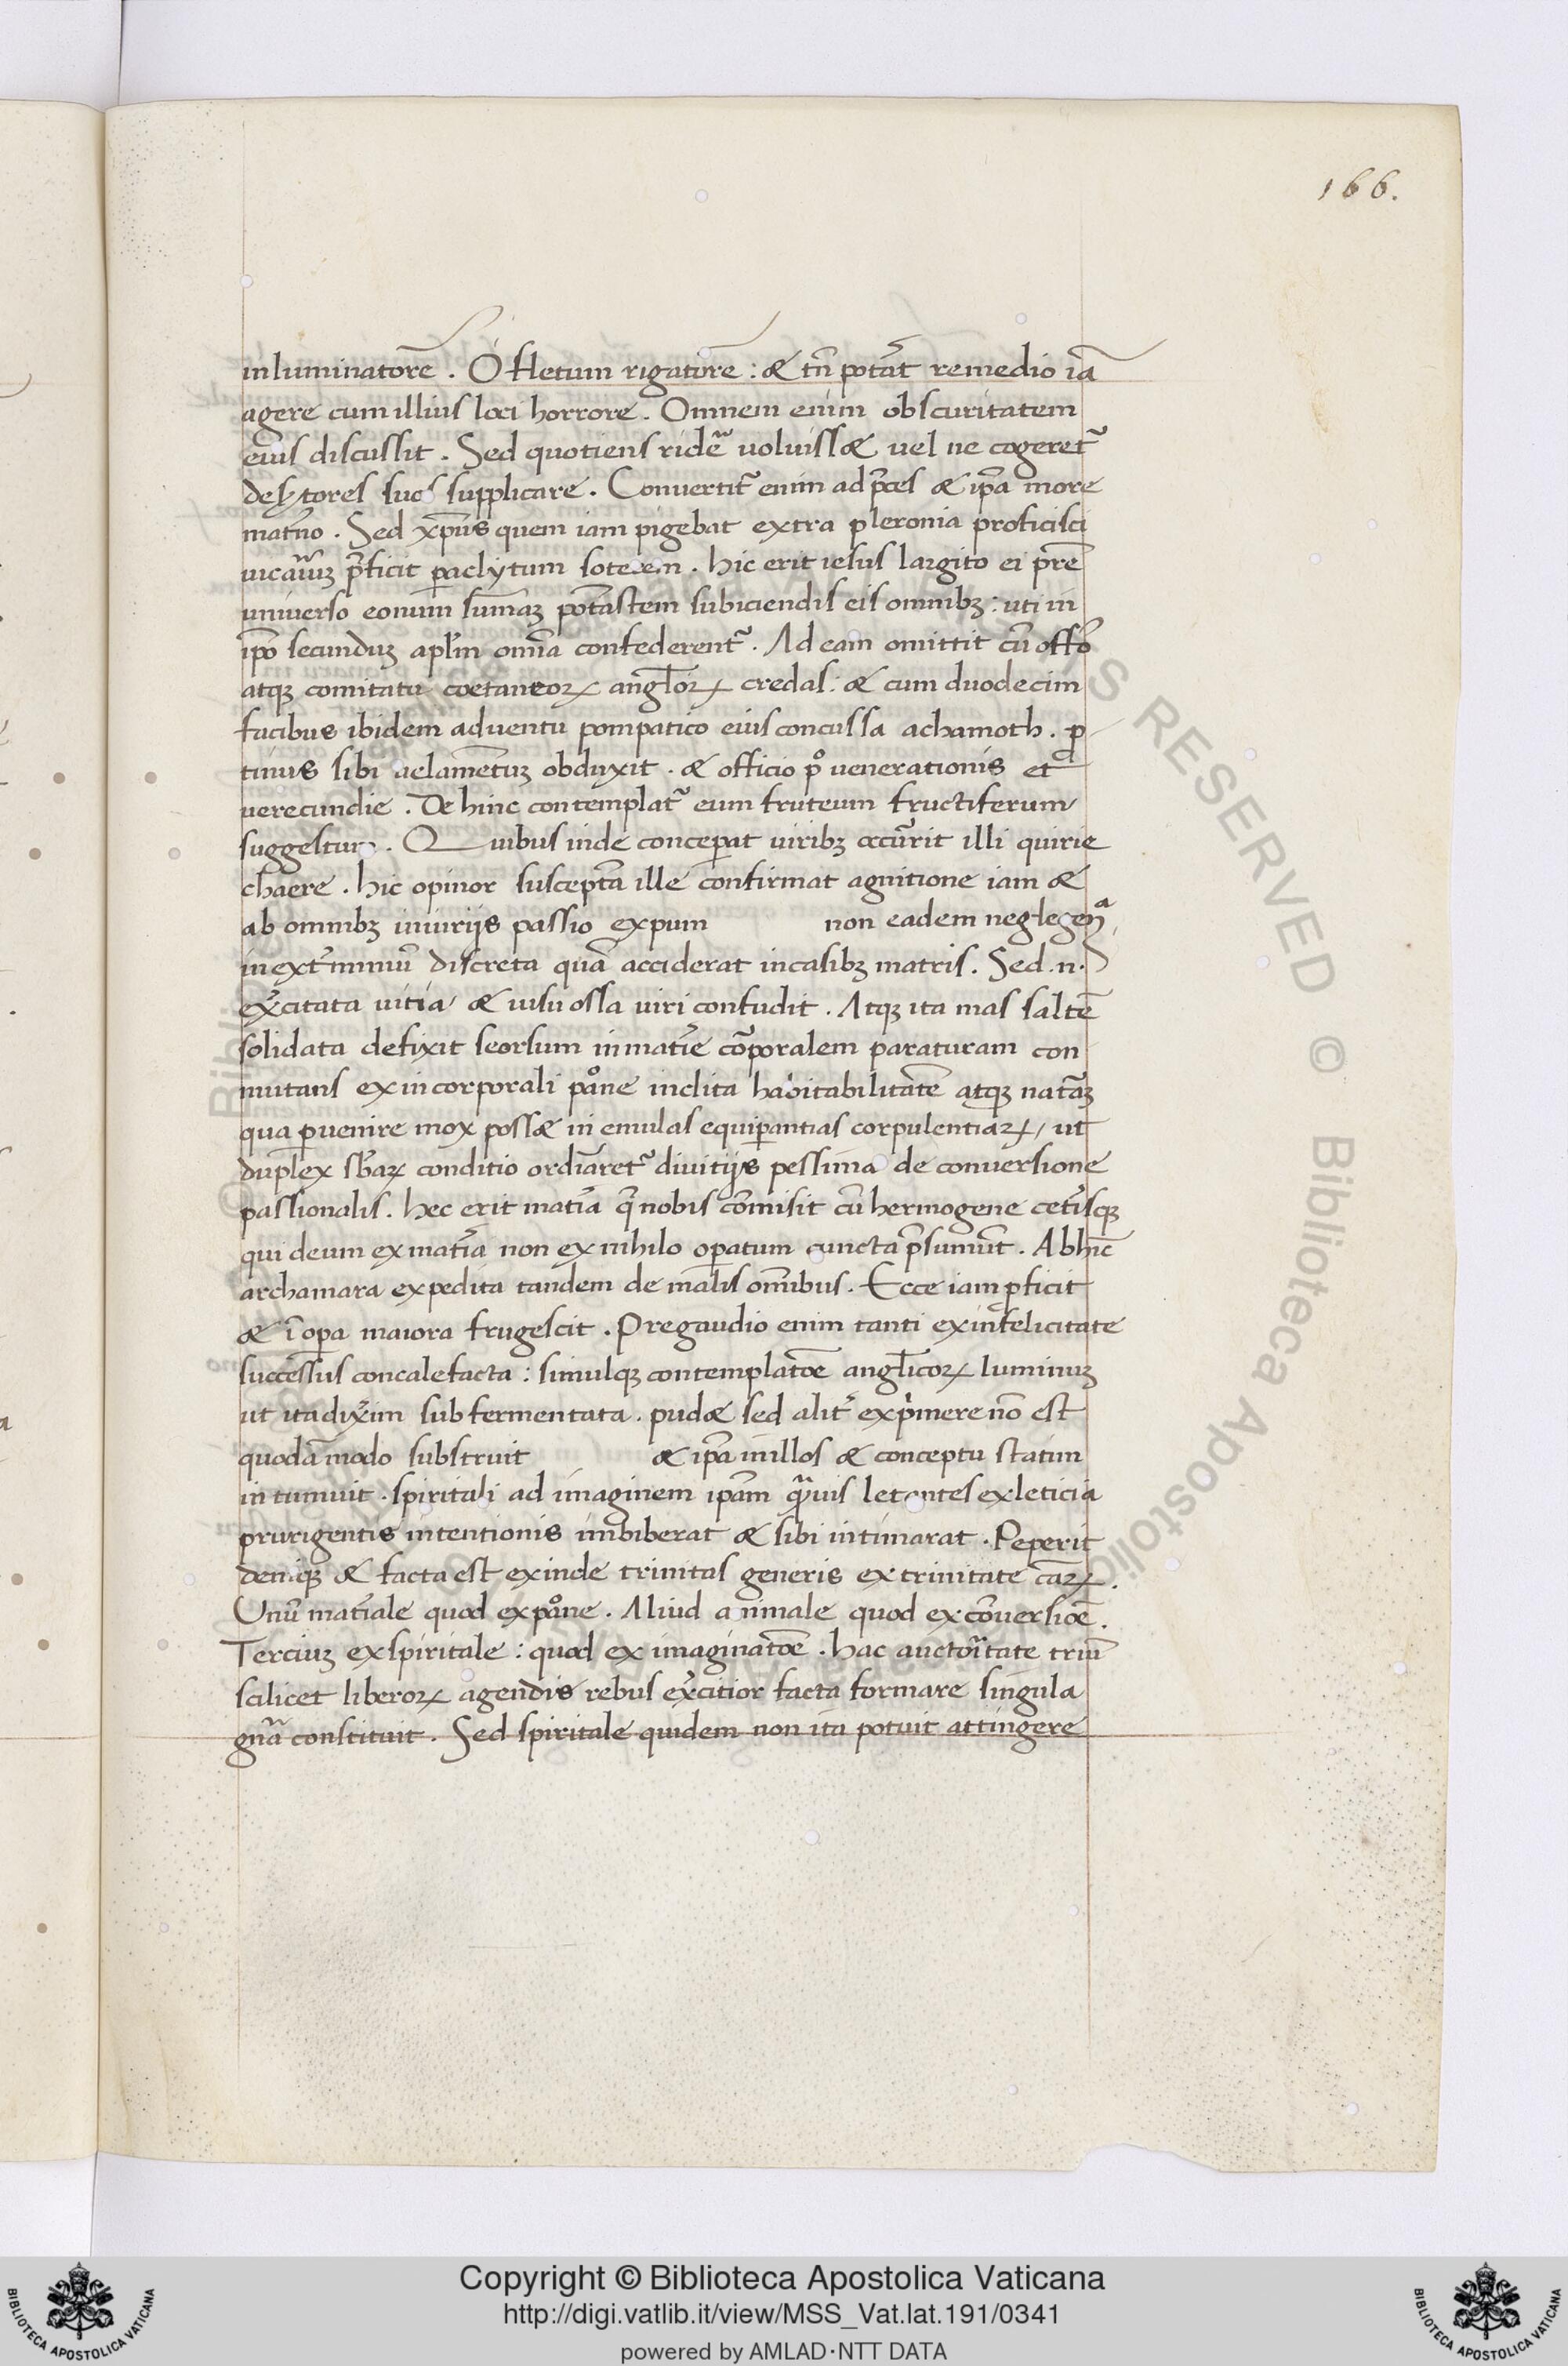 166.
inluminatorē. O fletum rigatorē: & tn̄ potāt remedio iā
agere cum illius loci horrore. Omnem enim obscuritatem
eius discussit. Sed quotiens ridēr̄ uoluiss& uel ne cogeret᷑
desytores suos supplicare. Convertit᷑ enim ad p̄ces & ip̄a more
mat̄no. Sed xp̄us quem iam pigebat extra pleronia proficisci
uicariuꝫ p̄ficit paclytum soterem. hic erit iesus largito ei pr̄e
universo eonum sum̄aꝫ potāstem subiciendis eis omnibꝫ: uti in
ip̄o secunduꝫ apl̄m om̄ia confederent᷑. Ad eam omittit cū offō
atqꝫ comitatu coetaneoꝝ angl̄oꝝ credas: & cum duodecim
facibus ibidem adventu pompatico eius concussa achamoth. ꝓ
tinus sibi uelam̄etuꝫ obduxit. & officio pº venerationis et
verecundie. De hinc contemplat᷑ eum fruteum fructiferum
suggestum. Quibus inde conceperat viribꝫ occūrit illi quirie
chaere. hic opinor suscepta ille confirmat agnitione iam &
ab omnibꝫ iniuriis passio expum non eadem neglegen̄a
in ext̄miniū discreta quā acciderat in casibꝫ matris. Sed .n.
ex̄citata uitia & uisu ossa viri confudit. Atqꝫ ita mas saltē
solidata defixit seorsum in mat̄ie cōporalem paraturam con
mutans ex incorporali paº̄ne inclita habitabilitatē atqꝫ natāꝫ
qua pervenire mox poss& in emulas equiperantias corpulentiaꝝ, ut
duplex sb̄aꝝ conditio ordiaret᷑ divitiis pessima de conversione
passionalis. hec erit mat̄ia q̄ nobis cōmisit cū hermogene cet̄isqꝫ
qui deum ex mat̄ia non ex nihilo operatum cuncta p̄sumūt. Abhīc
archamara expedita tandem de malis om̄ibus. Ecce iam ꝓficit
& ī opa maiora frugescit. Pregaudio enim tanti ex infelicitate
successus concalefacta: simulqꝫ contemplatōe angl̄icoꝝ luminuꝫ
ut ita dix̄im sub fermentata. pud& sed alit᷑ exp̄mere nō est
quodāmodo substruit & ip̄a in illos & conceptu statim
in tumuit. spiritali ad imaginem ip̄am q̄uis letantes ex leticia
prurigentis intentionis imbiberat & sibi intimarat. Peperit
deniqꝫ & facta est exinde trinitas generis ex trinitate caꝝ.
Unū mat̄iale quod ex paº̄ne. Aliud animale quod ex cōversiōe.
Terciuꝫ ex spiritale: quod ex imaginatōe. hac auctoritate triū
scilicet liberoꝝ agendis rebus ex̄citior facta formare singula
gn̄a constituit. Sed spiritale quidem non ita potuit attingere
© Biblioteca Apostolica
Copyright © Biblioteca Apostolica Vaticana
http://digi.vatlib.it/view/MSS_Vat.lat.191/0341
powered by AMLAD·NTT DATA
BIBLIOTECA APOSTOLICA VATICANA
BIBLIOTECA APOSTOLICA VATICANA